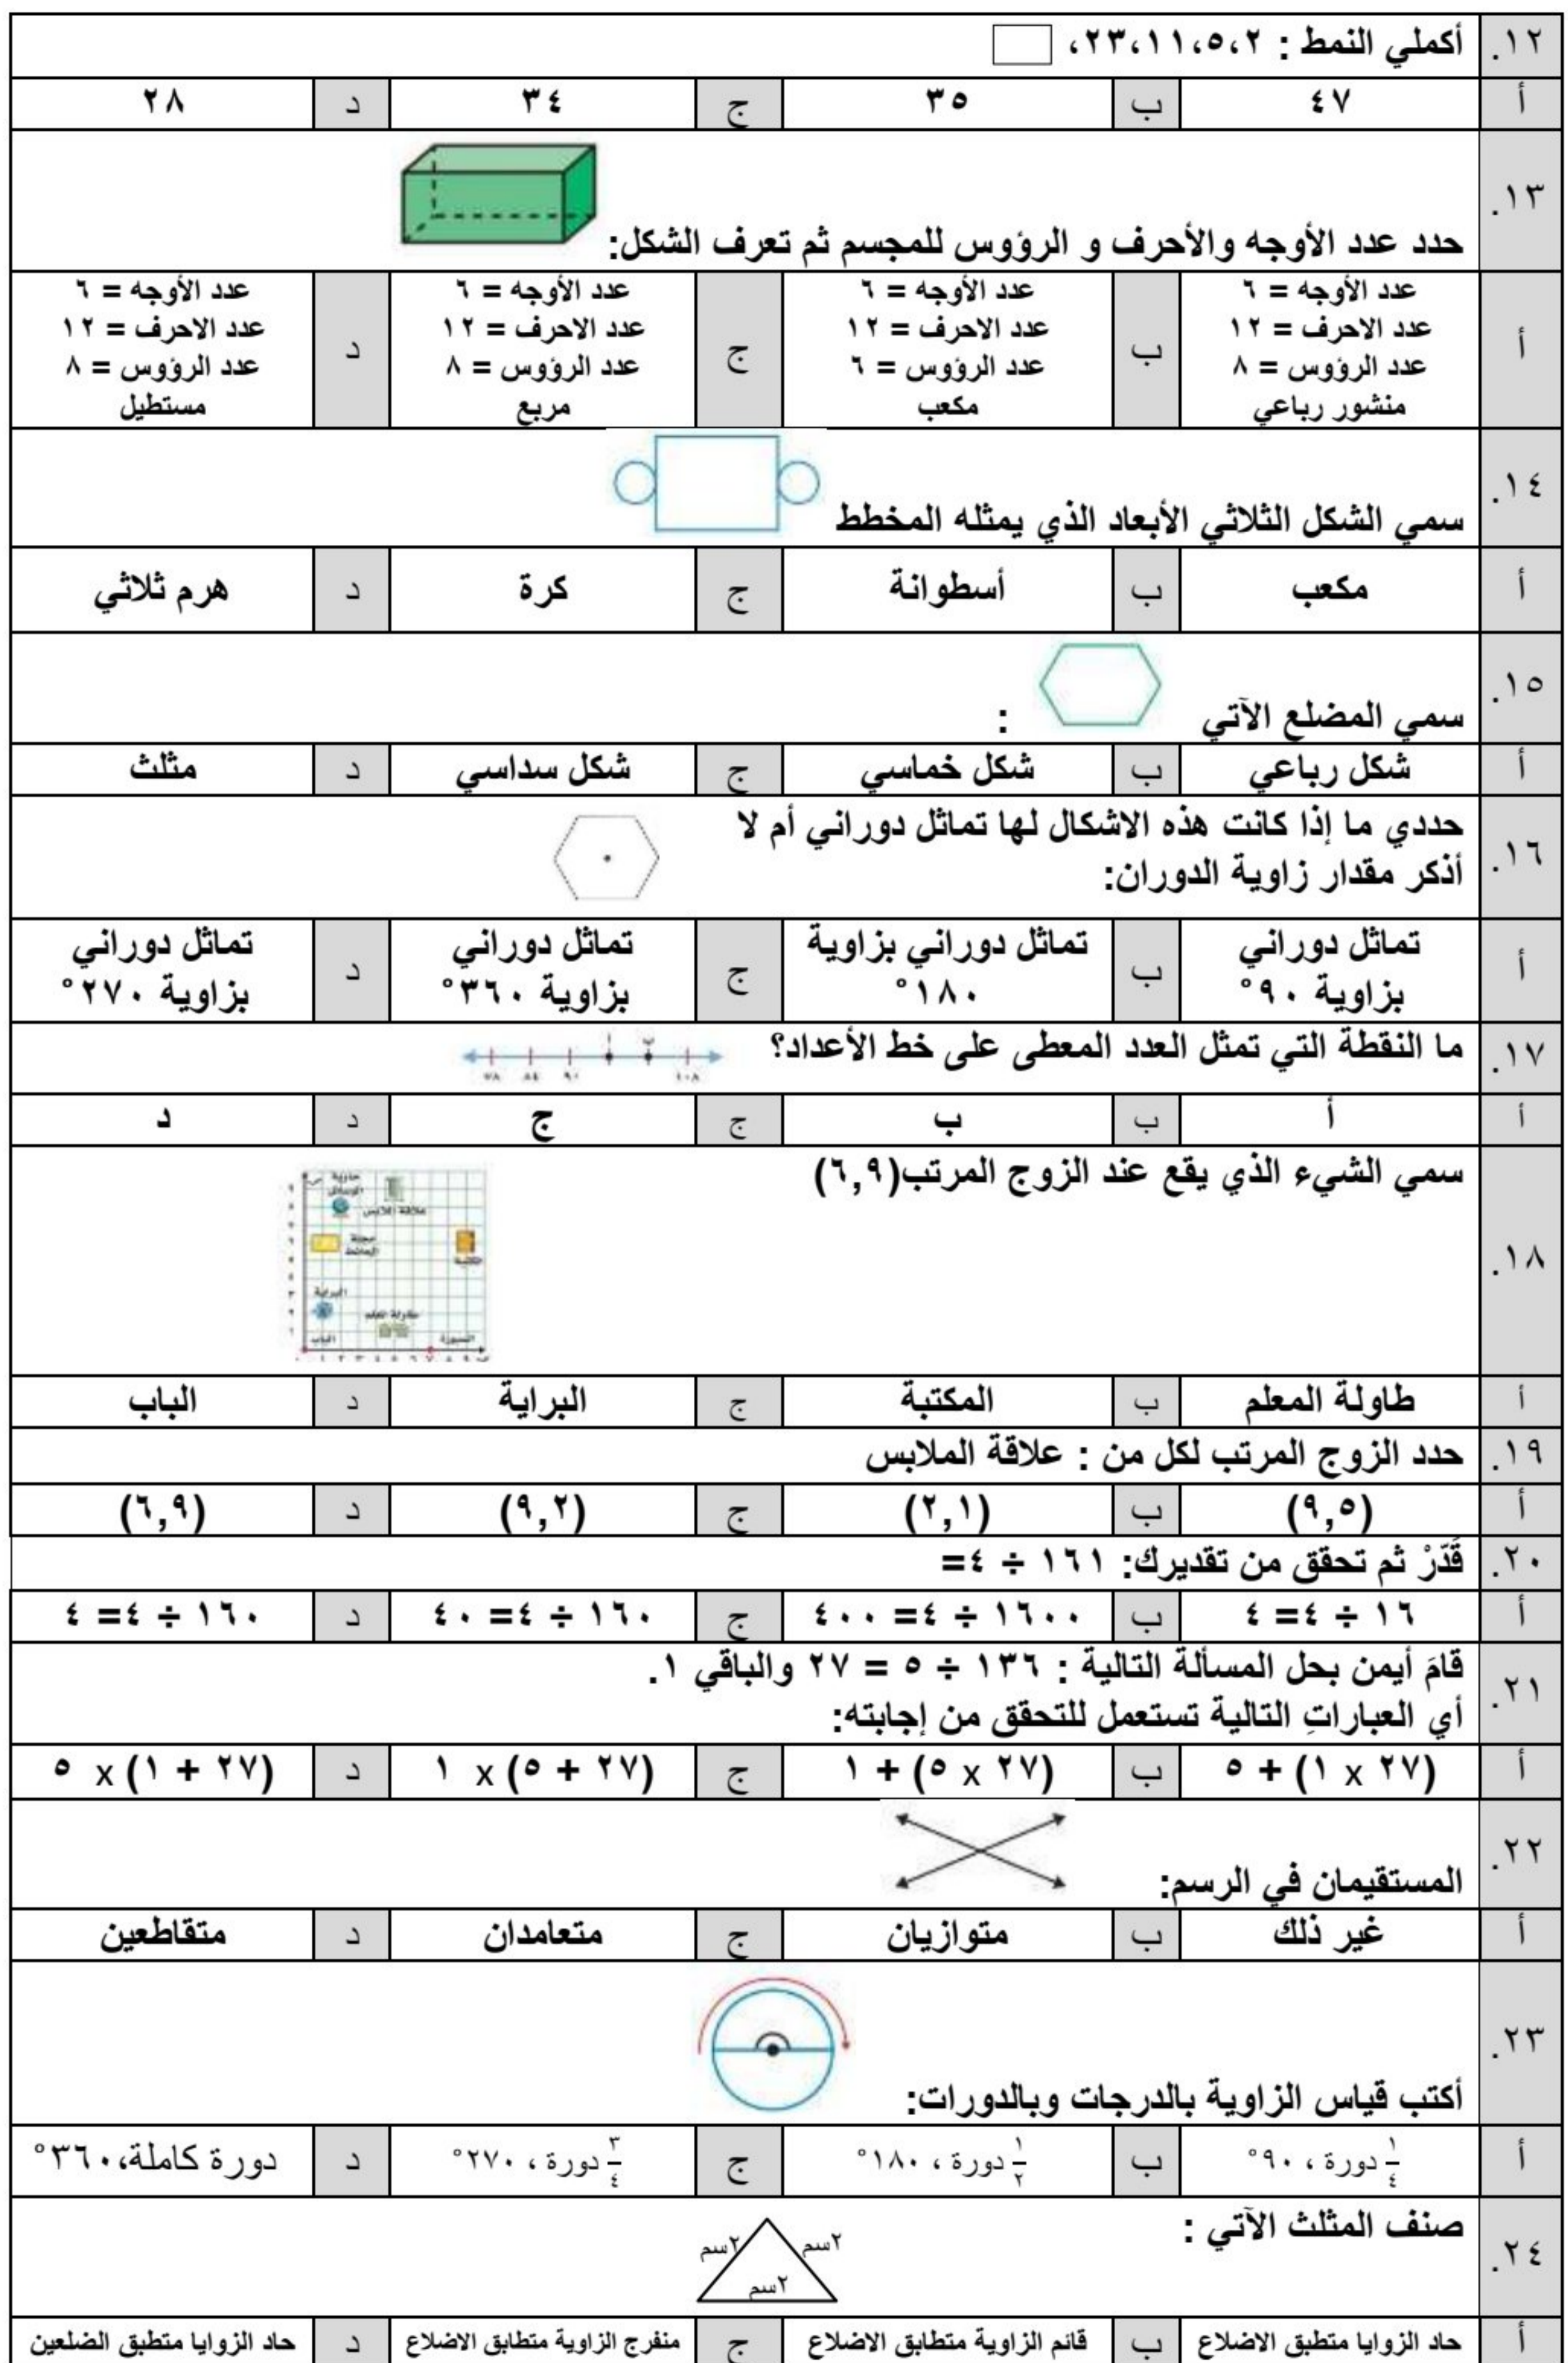 ١٢. أكملي النمط : ٢،٥،١١،٢٣،
أ ٤٧ ب ٣٥ ج ٣٤ د ٢٨
١٣. حدد عدد الأوجه والأحرف و الرؤوس للمجسم ثم تعرف الشكل:
أ عدد الأوجه = ٦
عدد الاحرف = ١٢
عدد الرؤوس = ٨
منشور رباعي
ب عدد الأوجه = ٦
عدد الاحرف = ١٢
عدد الرؤوس = ٦
مكعب
ج عدد الأوجه = ٦
عدد الاحرف = ١٢
عدد الرؤوس = ٨
مربع
د عدد الأوجه = ٦
عدد الاحرف = ١٢
عدد الرؤوس = ٨
مستطيل
١٤. سمي الشكل الثلاثي الأبعاد الذي يمثله المخطط
أ مكعب ب أسطوانة ج كرة د هرم ثلاثي
١٥. سمي المضلع الآتي :
أ شكل رباعي ب شكل خماسي ج شكل سداسي د مثلث
١٦. حددي ما إذا كانت هذه الاشكال لها تماثل دوراني أم لا
أذكر مقدار زاوية الدوران:
أ تماثل دوراني
بزاوية ٩٠°
ب تماثل دوراني بزاوية
١٨٠°
ج تماثل دوراني
بزاوية ٣٦٠°
د تماثل دوراني
بزاوية ٢٧٠°
١٧. ما النقطة التي تمثل العدد المعطى على خط الأعداد؟
أ ب
٧٨ ٨٤ ٩٠ ١٠٨
أ أ ب ب ج ج د د
١٨. سمي الشيء الذي يقع عند الزوج المرتب(٦,٩)
حاوية
علاقة الملابس
مجلة
الحائط
المكتبة
البراية
طاولة المعلم
الباب
السبورة
أ طاولة المعلم ب المكتبة ج البراية د الباب
١٩. حدد الزوج المرتب لكل من : علاقة الملابس
أ (٩,٥) ب (٢,١) ج (٩,٢) د (٦,٩)
٢٠. قَدّرْ ثم تحقق من تقديرك: ١٦١ ÷ ٤=
أ ١٦ ÷ ٤= ٤ ب ١٦٠٠ ÷ ٤= ٤٠٠ ج ١٦٠ ÷ ٤= ٤٠ د ١٦٠ ÷ ٤= ٤
٢١. قامَ أيمن بحل المسألة التالية : ١٣٦ ÷ ٥ = ٢٧ والباقي ١.
أي العباراتِ التالية تستعمل للتحقق من إجابته:
أ (٢٧ x ١) + ٥ ب (٢٧ x ٥) + ١ ج (٢٧ + ٥) x ١ د (٢٧ + ١) x ٥
٢٢. المستقيمان في الرسم:
أ غير ذلك ب متوازيان ج متعامدان د متقاطعين
٢٣. أكتب قياس الزاوية بالدرجات وبالدورات:
أ ١/٤ دورة ، ٩٠° ب ١/٢ دورة ، ١٨٠° ج ٣/٤ دورة ، ٢٧٠° د دورة كاملة،٣٦٠°
٢٤. صنف المثلث الآتي :
٢سم ٢سم
٢سم
أ حاد الزوايا متطبق الاضلاع ب قائم الزاوية متطابق الاضلاع ج منفرج الزاوية متطابق الاضلاع د حاد الزوايا متطبق الضلعين